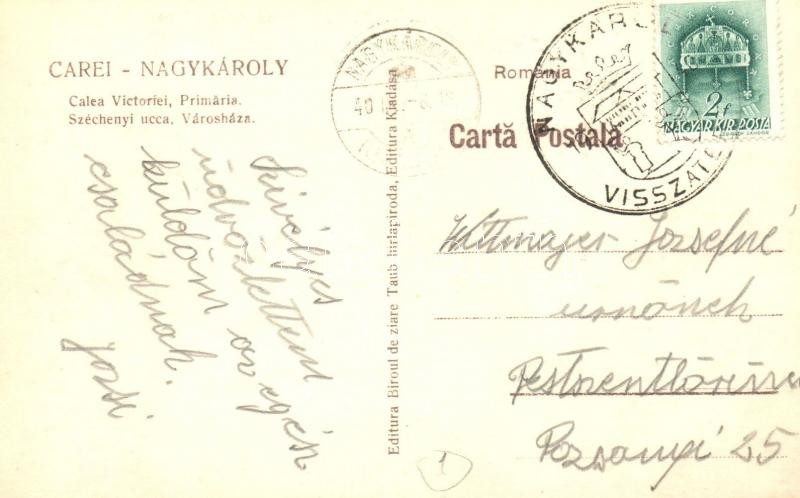 CAREI – NAGYKÁROLY
Calea Victoriei, Primăria.
Széchenyi ucca, Városháza.
Szivélyes
üdvözlettem
küldöm az egész
családnak.
Joski
Editura Biroul de ziare Taub hirlapiroda, Editura Kiadása
NAGYKÁROLY
40
România
Cartă Postală
NAGYKÁROLY
VISSZATÉRT
2f
MAGYAR KIR. POSTA
Wittmajer Jozsefné
urnőnek
Pestszentlőrincz
Pozsonyi 25
1